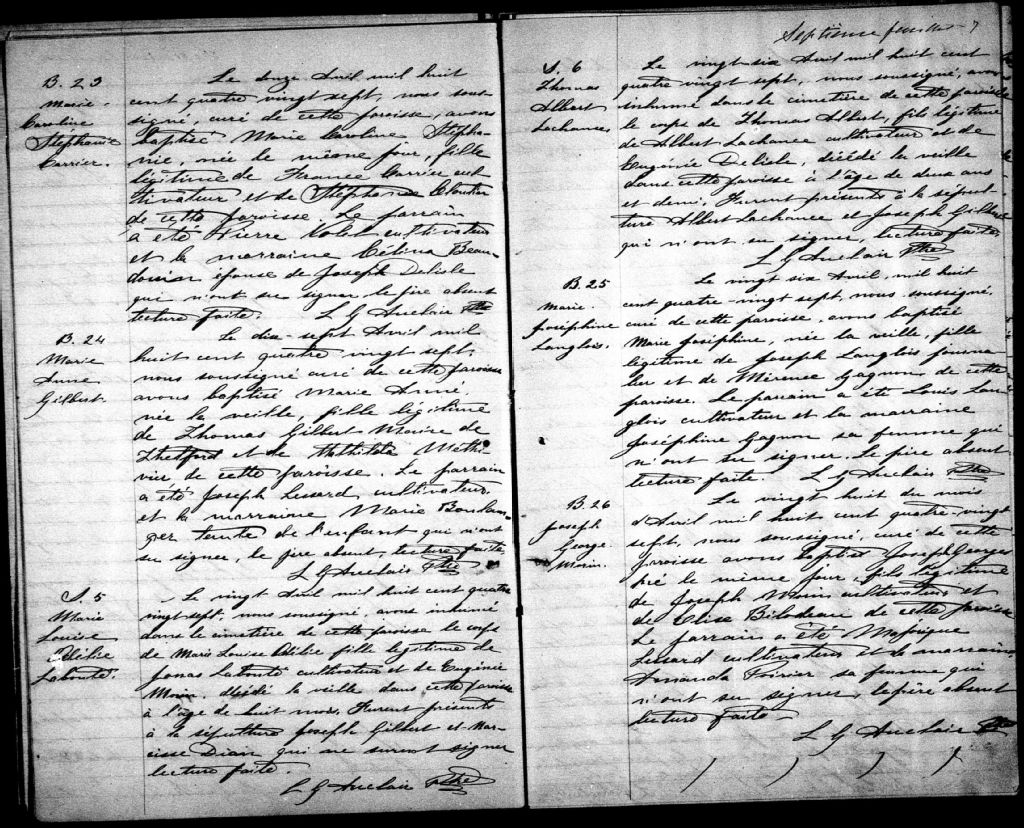 B. 23
Marie
Caroline
Stéphanie
Carrier.
Le onze Avril mil huit
cent quatre vingt sept, nous sous-
signé, curé de cette paroisse, avons
baptisé Marie Caroline Stépha-
nie, née le même jour, fille
légitime de France Carrier cul
tivateur et de Stéphanie Cloutier
de cette paroisse. Le parrain
a été Pierre Nolet cultivateur
et la marraine Célina Beau-
douin épouse de Joseph Delisle
qui n'ont su signer, le père absent
lecture faite. L G Auclair Ptre
B. 24
Marie
Anne
Gilbert.
Le dix-sept Avril mil
huit cent quatre vingt sept,
nous soussigné curé de cette paroisse
avons baptisé Marie Anne
née la veille, fille légitime
de Thomas Gilbert Maire de
Thetford et de Mathilda Méthi-
vier de cette paroisse. Le parrain
a été Joseph Lessard cultivateur
et la marraine Marie Boulan-
ger tante de l'enfant qui n'ont
su signer, le père absent, lecture faite
L G Auclair Ptre
S. 5
Marie
Louise
Délie
Labonté.
Le vingt Avril mil huit cent quatre
vingt sept, nous soussigné avons inhumé
dans le cimetière de cette paroisse le corps
de Marie Louise Délie fille légitime de
Jonas Labonté cultivateur et de Eugénie
Morin. décédé la veille dans cette paroisse
à l'âge de huit mois. Furent présents
à la sépulture Joseph Gilbert et Nar-
cisse Dion qui ne surent signer
lecture faite.
L G Auclair Ptre
Septième feuillet 7
S. 6
Thomas
Albert
Lachance,
Le vingt-six Avril mil huit cent
quatre vingt sept, nous soussigné, avons
inhumé dans le cimetière de cette paroisse
le corps de Thomas Albert, fils légitime
de Albert Lachance cultivateur et de
Eugénie Delisle, décédé la veille
dans cette paroisse à l'âge de deux ans
et demi. Furent présents à la sépul-
ture Albert Lachance et Joseph Gilbert
qui n'ont su signer, lecture faite,
L G Auclair Ptre
B. 25
Marie
Joséphine
Langlois.
Le vingt six Avril, mil huit
cent quatre-vingt sept, nous soussigné,
curé de cette paroisse, avons baptisé
Marie Joséphine, née la veille, fille
légitime de Joseph Langlois journa-
lier et de Mérence Gagnon de cette
paroisse. Le parrain a été Louis Lan-
glois cultivateur et la marraine
Joséphine Gagnon sa femme qui
n'ont su signer. Le père absent
lecture faite. L G Auclair Ptre
B. 26
Joseph
George
Morin.
Le vingt huit du mois
d'Avril mil huit cent quatre-vingt
sept, nous soussigné, curé de cette
paroisse avons baptisé Joseph George
né le même jour, fils légitime
de Joseph Morin cultivateur et
de Elise Bilodeau de cette paroisse
Le parrain a été Majorique
Lessard cultivateur et la marraine
Amanda Poirier sa femme qui
n'ont su signer, le père absent
lecture faite.
L G Auclair Ptre